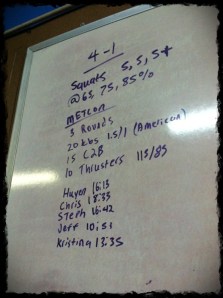 4-1
Squats 5, 5, 5+
@65, 75, 85%
METCON
3 Rounds
20 KBS 1.5/1 (American)
15 C2B
10 Thrusters 115/85
Chris 18:35
Steph 16:42
Jeff 10:51
Kristina 13:35